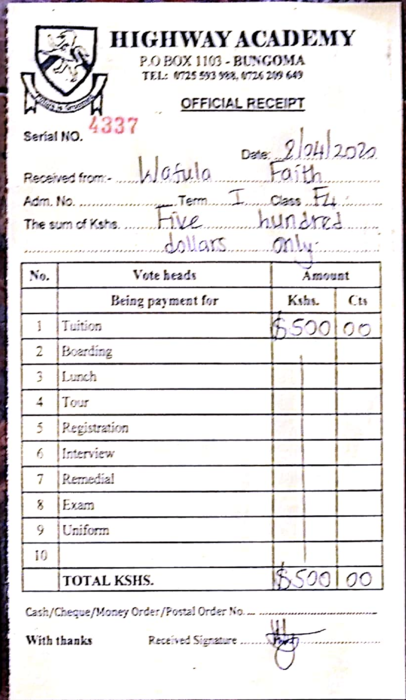 HIGHWAY ACADEMY
P.O BOX 1103 - BUNGOMA
TEL: 0725 593 988, 0726 209 649
OFFICIAL RECEIPT
Serial NO. 4337
Date: 8/04/2020
Received from:- Wafula Faith
Adm. No. Term I Class F4
The sum of Kshs. Five hundred
dollars only.
No. Vote heads Amount
Being payment for Kshs. Cts
1 Tuition $500 00
2 Boarding
3 Lunch
4 Tour
5 Registration
6 Interview
7 Remedial
8 Exam
9 Uniform
10
TOTAL KSHS. $500 00
Cash/Cheque/Money Order/Postal Order No.
With thanks Received Signature